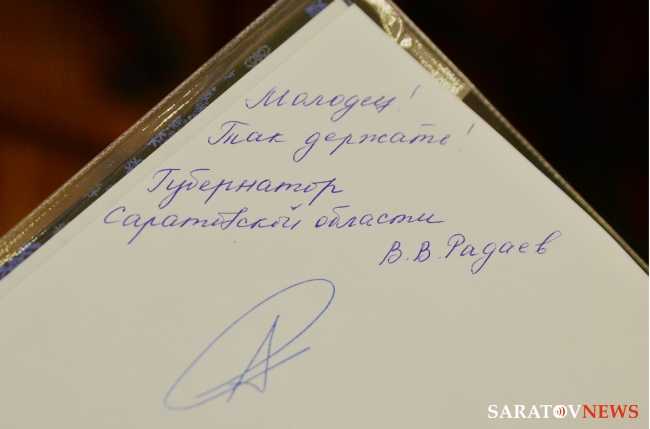 Молодец!
Так держать!
Губернатор
Саратовской области
В.В. Радаев
SARATOVNEWS